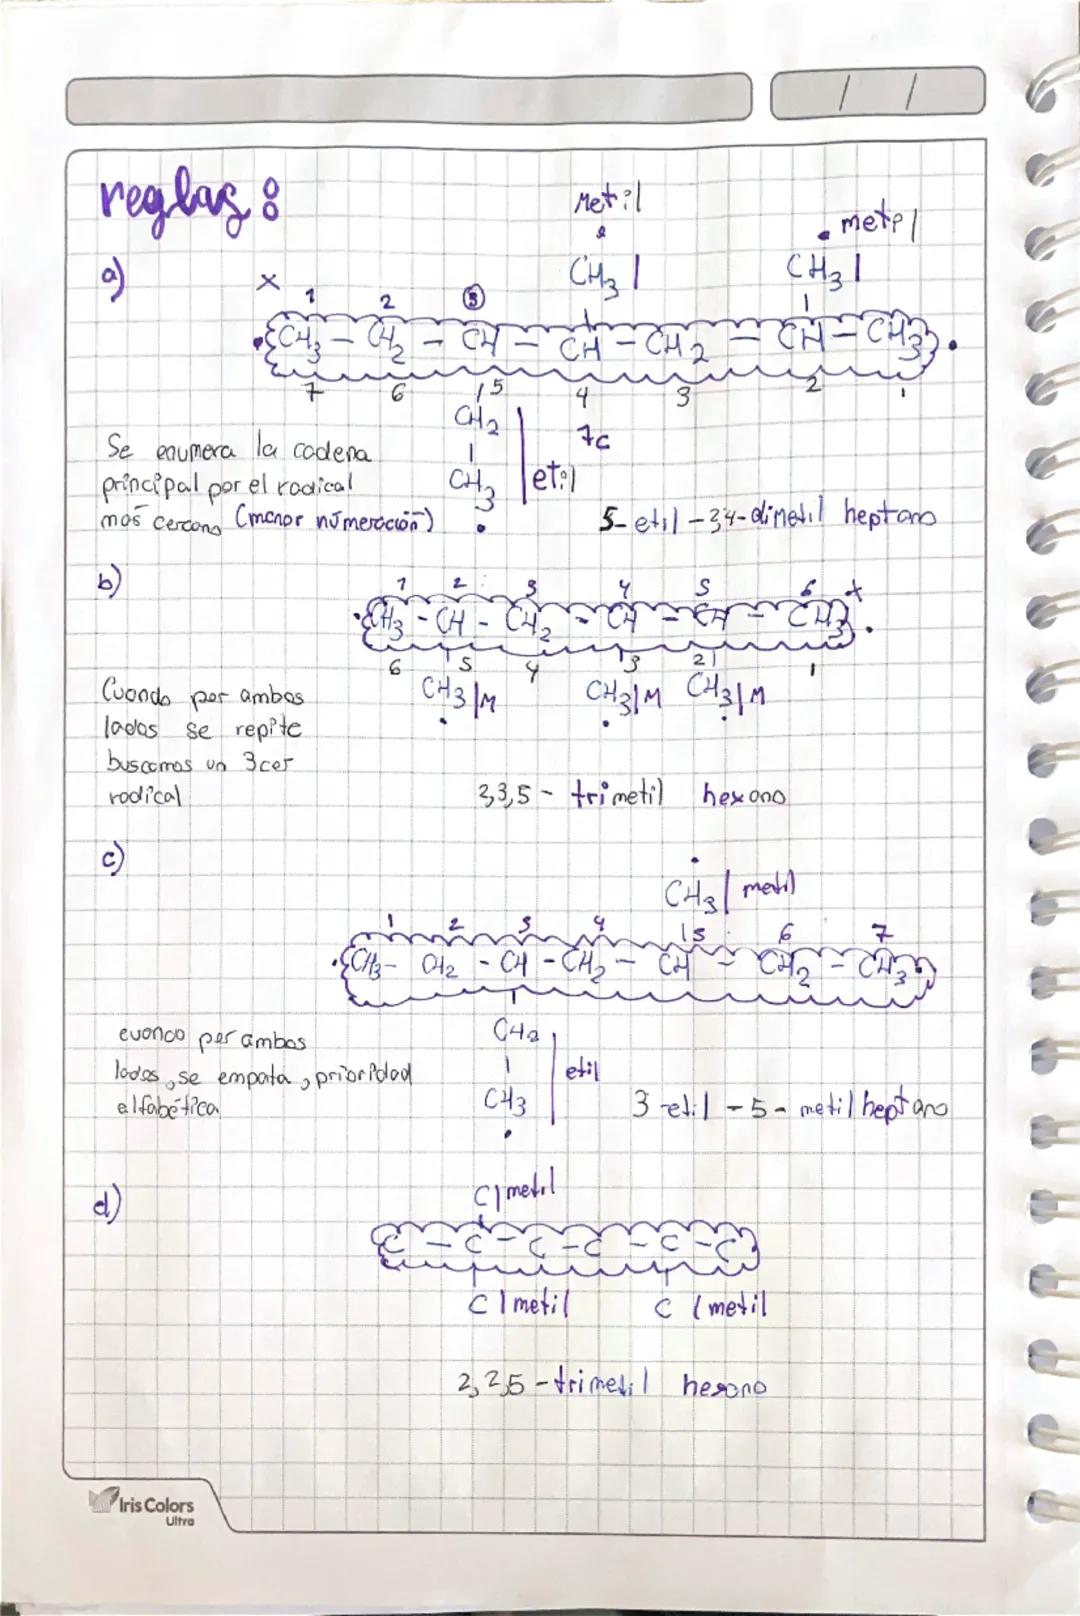 / /
reglas:
a)
Metil
metil
CH₃ |
CH₃ |
x
1 2 ③
CH₃ - CH₂ - CH - CH - CH₂ - CH - CH₃
7 6 5 4 3 2 1
CH₂
7c
CH₃ | etil
Se enumera la cadena
principal por el radical
mas cercano (menor numeración)
5- etil -3,4-dimetil heptano
b)
1 2 3 4 5 6 x
CH₃ - CH - CH₂ - CH - CH - CH₃
6 5 4 3 2 1
CH₃|M CH₃|M CH₃|M
Cuando por ambos
lados se repite
buscamos un 3cer
radical
2,3,5 - trimetil hexano
c)
CH₃ | metil
1 2 3 4 5 6 7
CH₃ - CH₂ - CH - CH₂ - CH - CH₂ - CH₃
CH₂
CH₃ | etil
cuando por ambos
lados, se empata, prioridad
alfabética
3 -etil -5- metil heptano
d)
C| metil
C - C - C - C - C - C
C | metil C | metil
2,2,5 - trimetil hexano
Iris Colors
Ultra